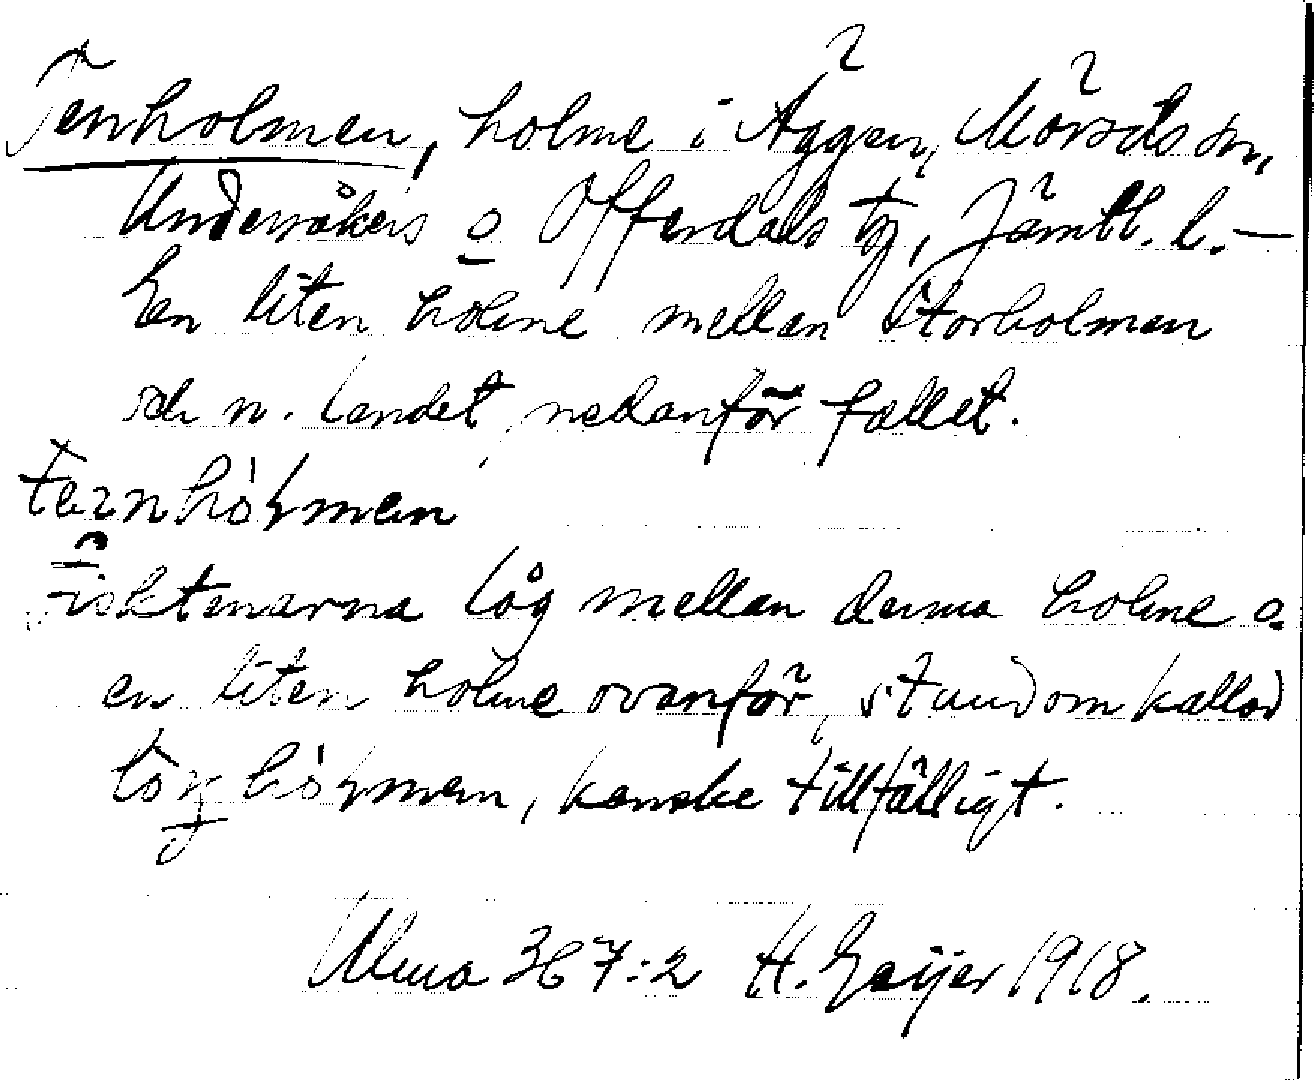 Tenholmen, holme i Äggen, Mörsils sn,
Undersåkers o Offerdals tg, Jämtl. l. —
En liten holme mellan Storholmen
och n. landet, nedanför fallet.
Fisktenarna låg mellan denna holme o.
en liten holme ovanför, stundom kallad
kanske tillfälligt.
Ulma 367:2 H. Geijer 1918.